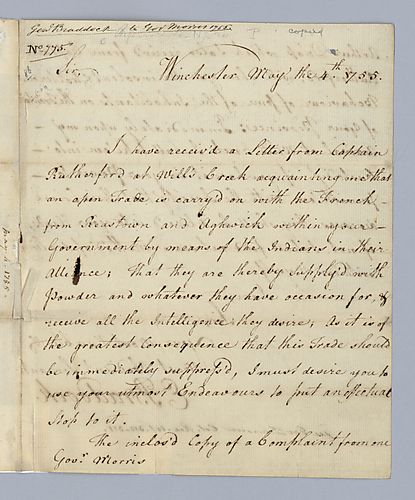 Genl. Braddock to Govr Morris 1755
copied
No 775.
Sir,
Winchester May, the 4th. 1755.
I have receiv'd a Letter from Captain
Rutherford at Will's Creek acquainting me that
an open Trade is carry'd on with the French
from Reastown and Aghwick within your
Government by means of the Indians in their
Alliance; that they are thereby supply'd with
Powder and whatever they have occasion for, &
receive all the Intelligence they desire; As it is of
the greatest Consequence that this Trade should
be immediately suppress'd, I must desire you to
use your utmost Endeavours to put an effectual
stop to it.
The inclos'd Copy of a Complaint from one
Govr. Morris